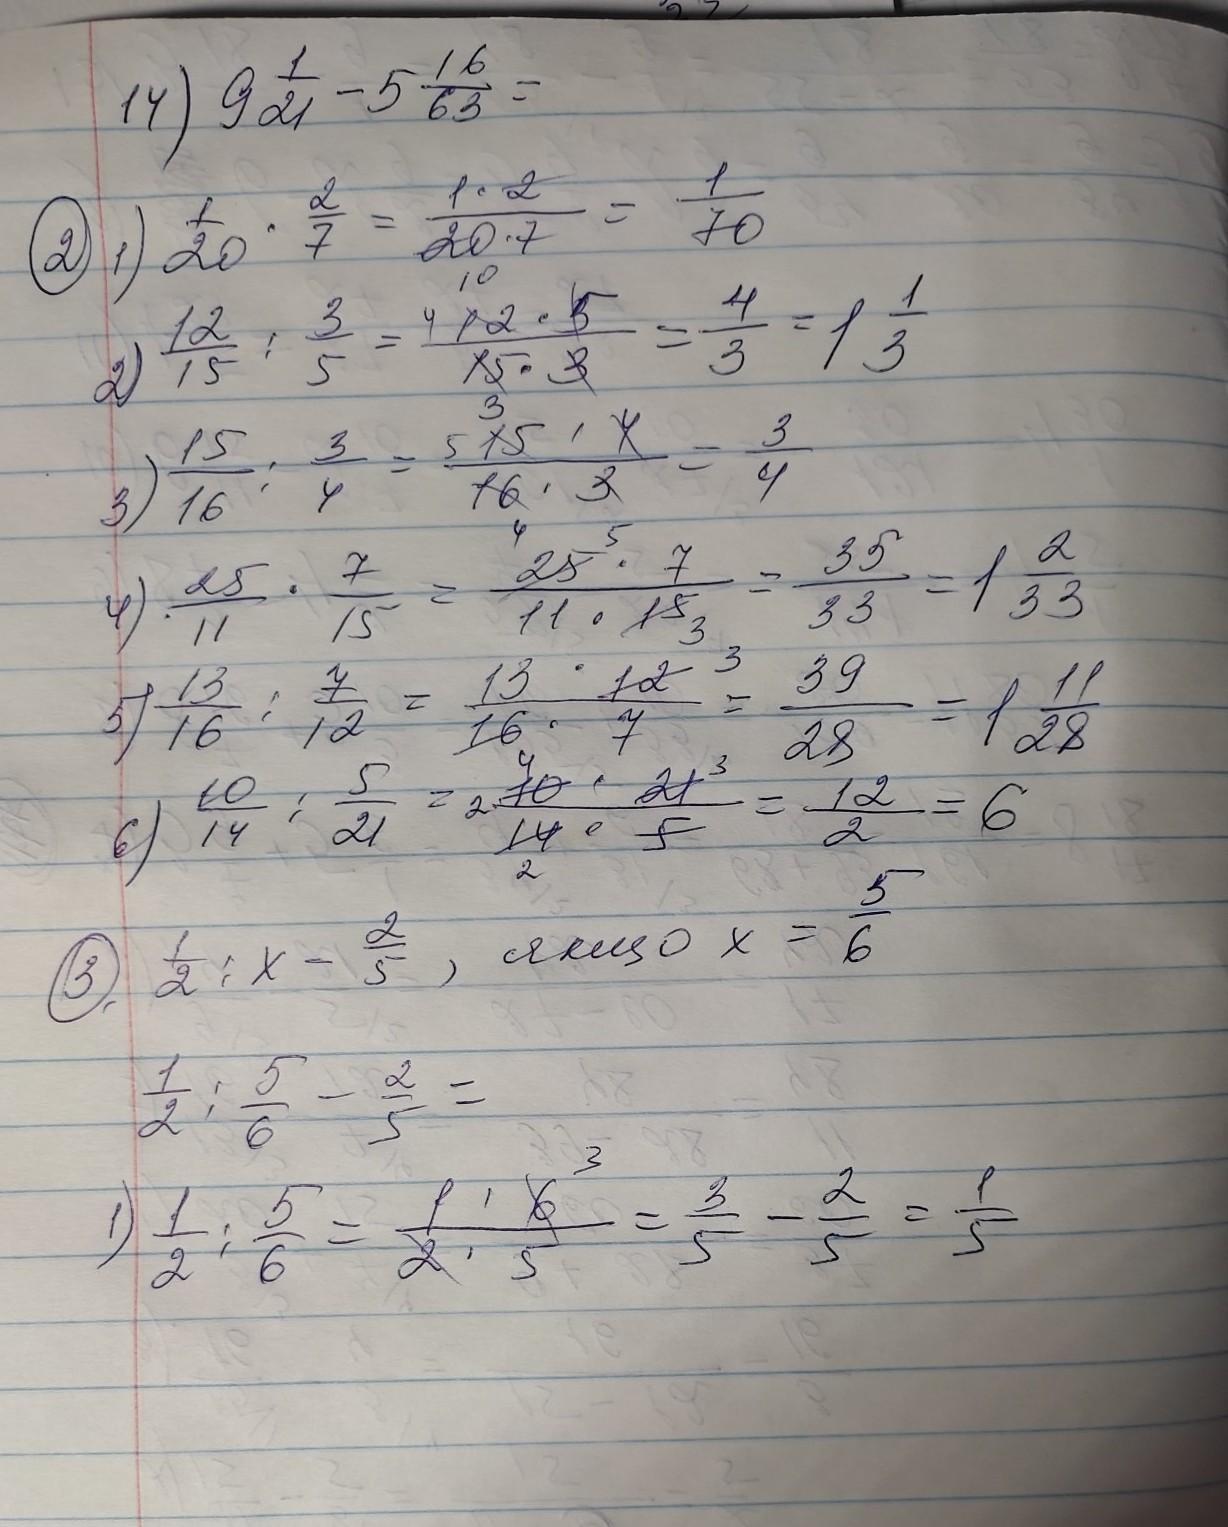 14) 9 1/21 - 5 16/63 =
② 1) 1/20 · 2/7 = 1·2/20·7 = 1/70
10
2) 12/15 : 3/5 = 4 12·5/15·3 = 4/3 = 1 1/3
3
3) 15/16 : 3/4 = 5 15·4/16·3 = 3/4
4
4) 25/11 · 7/15 = 25 5 · 7/11 · 15 3 = 35/33 = 1 2/33
5) 13/16 : 7/12 = 13 · 12 3/16 · 7 = 39/28 = 1 11/28
4
6) 10/14 : 5/21 = 2 10 · 21 3/14 · 5 = 12/2 = 6
2
③. 1/2 : x - 2/5, якщо x = 5/6
1/2 : 5/6 - 2/5 =
1) 1/2 : 5/6 = 1 · 6 3/2 · 5 = 3/5 - 2/5 = 1/5